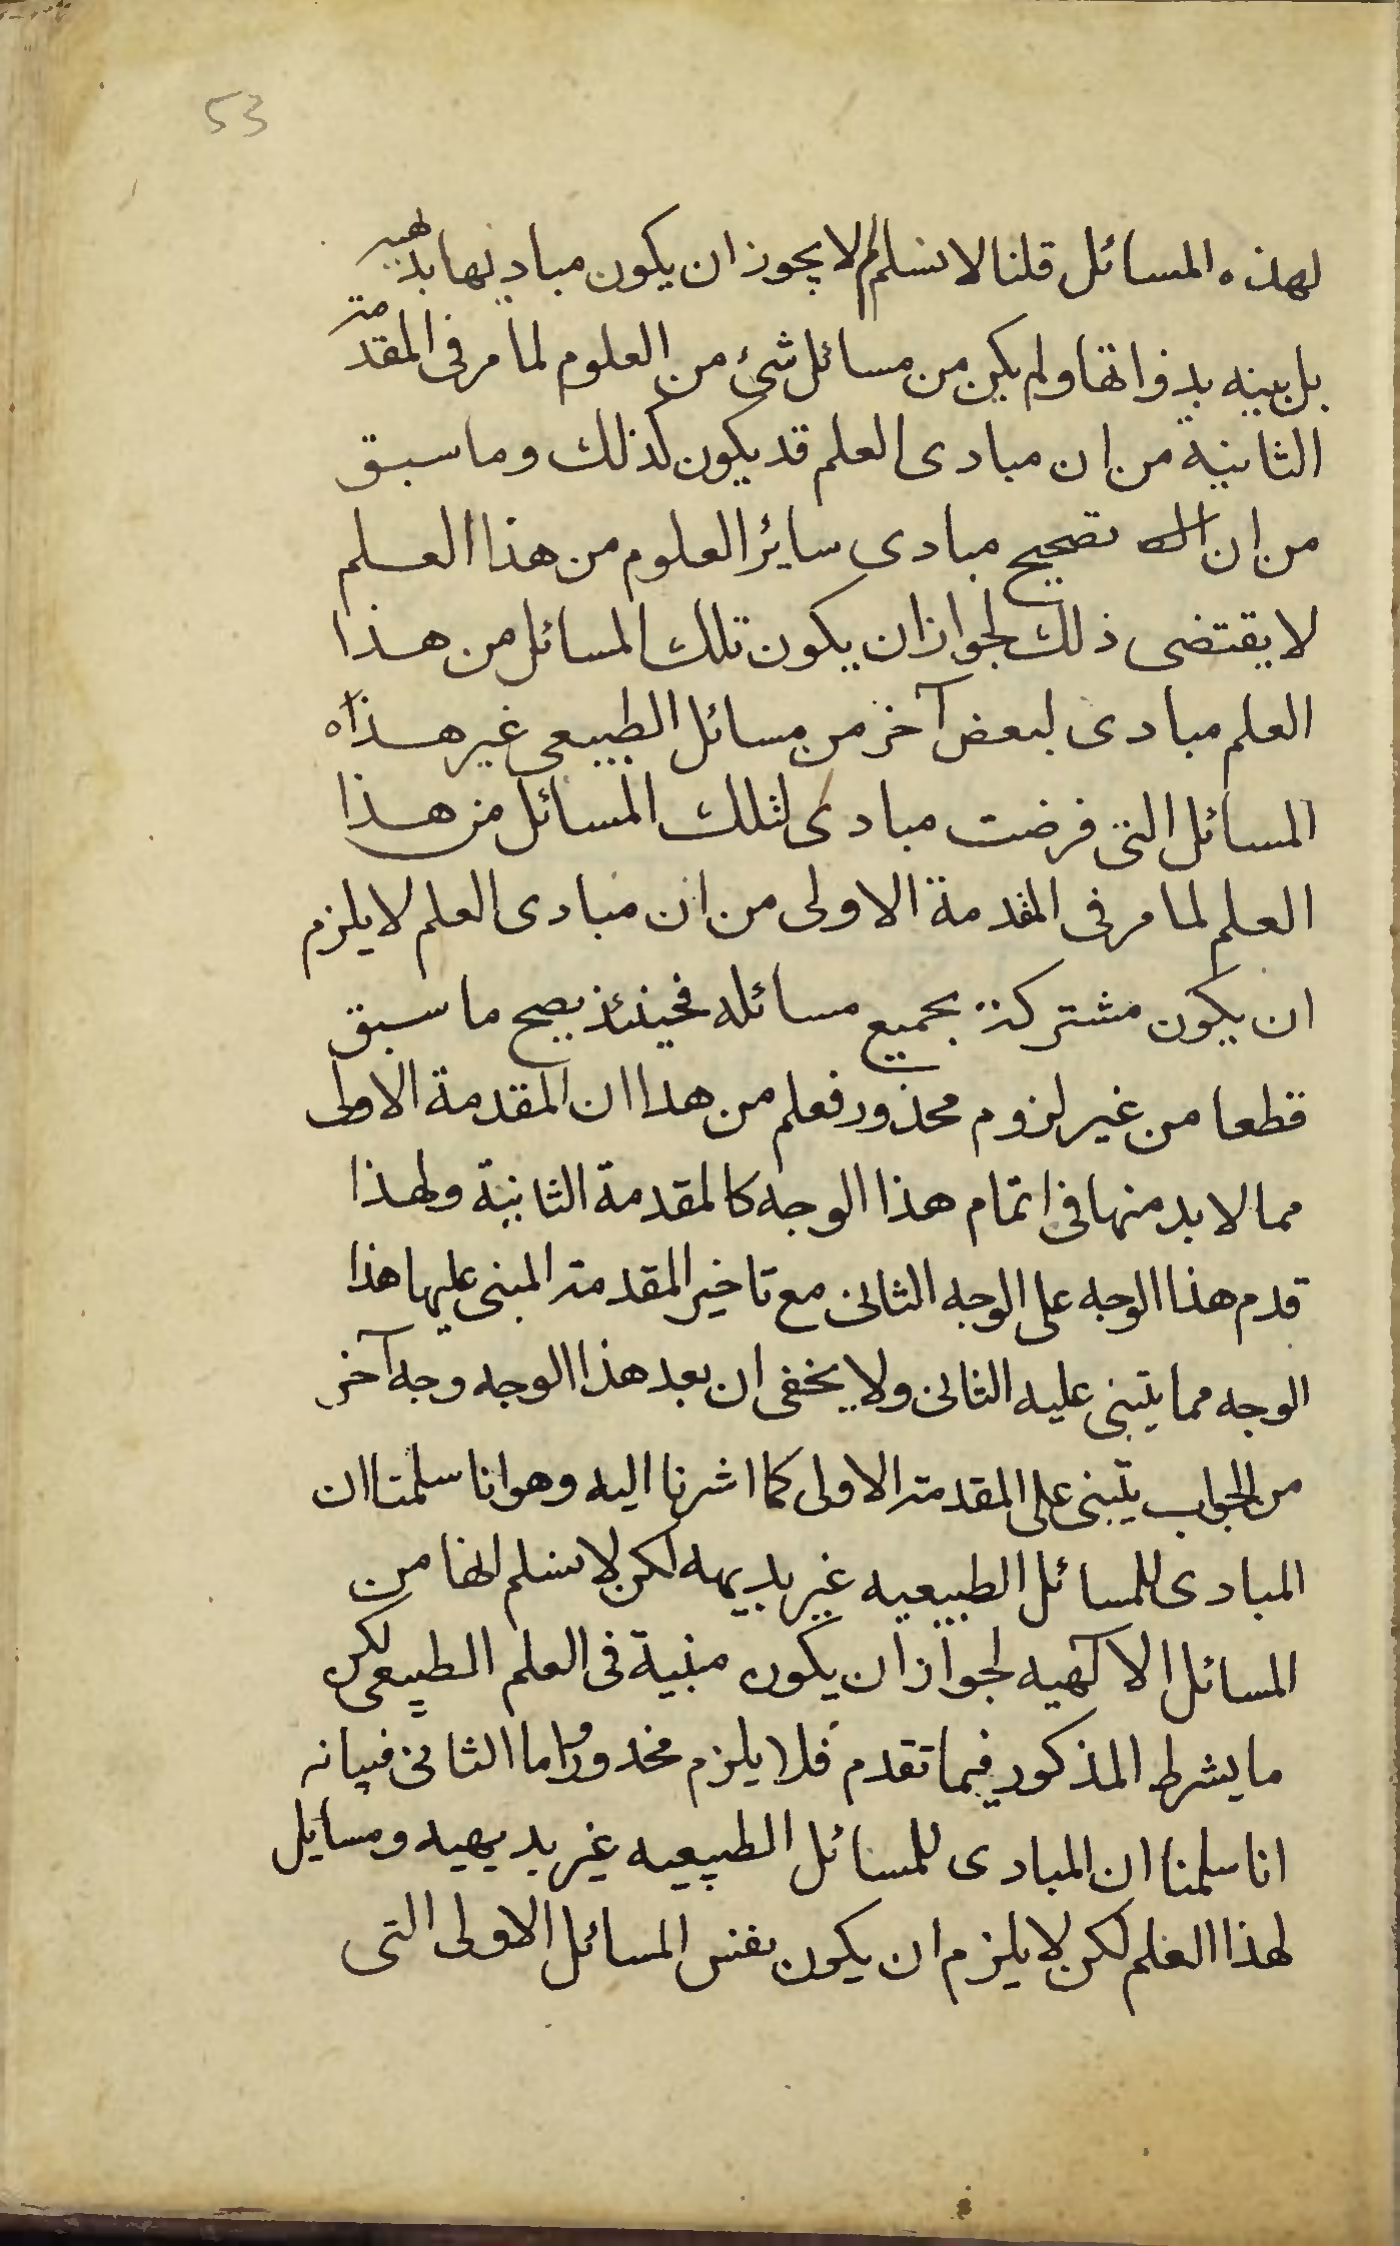 53
لهذه المسائل قلنا لا نسلم لم لا يجوز ان يكون مباديها بديهية
بل بينه بذواتها ولم يكن من مسائل شئ من العلوم لما مر فى المقدمة
الثانية من ان مبادى العلم قد يكون كذلك وما سبق
من ان تصحيح مبادى سائر العلوم من هذا العلم
لا يقتضى ذلك لجواز ان يكون تلك المسائل من هذا
العلم مبادى لبعض آخر من مسائل الطبيعى غير هذه
المسائل التى فرضت مبادى لتلك المسائل من هذا
العلم لما مر فى المقدمة الاولى من ان مبادى العلم لا يلزم
ان يكون مشتركة بجميع مسائله فحينئذ يصح ما سبق
قطعا من غير لزوم محذور فعلم من هذا ان المقدمة الاولى
مما لا بد منها فى اتمام هذا الوجه كالمقدمة الثانية ولهذا
قدم هذا الوجه على الوجه الثانى مع تاخير المقدمة المبنى عليها هذا
الوجه مما يتبنى عليه الثانى ولا يخفى ان بعد هذا الوجه وجه آخر
من الجواب يتبنى على المقدمة الاولى كما اشرنا اليه وهو انا سلمنا ان
المبادى للمسائل الطبيعيه غير بديهه لكن لا نسلم انها من
المسائل الالهيه لجواز ان يكون مبنية فى العلم الطبيعى لكن
ما يشرط المذكور فيما تقدم فلا يلزم محذور واما الثانى فبيانه
انا سلمنا ان المبادى للمسائل الطبيعيه غير بديهيه ومسايل
لهذا العلم لكن لا يلزم ان يكون بفنس المسائل الاولى التى